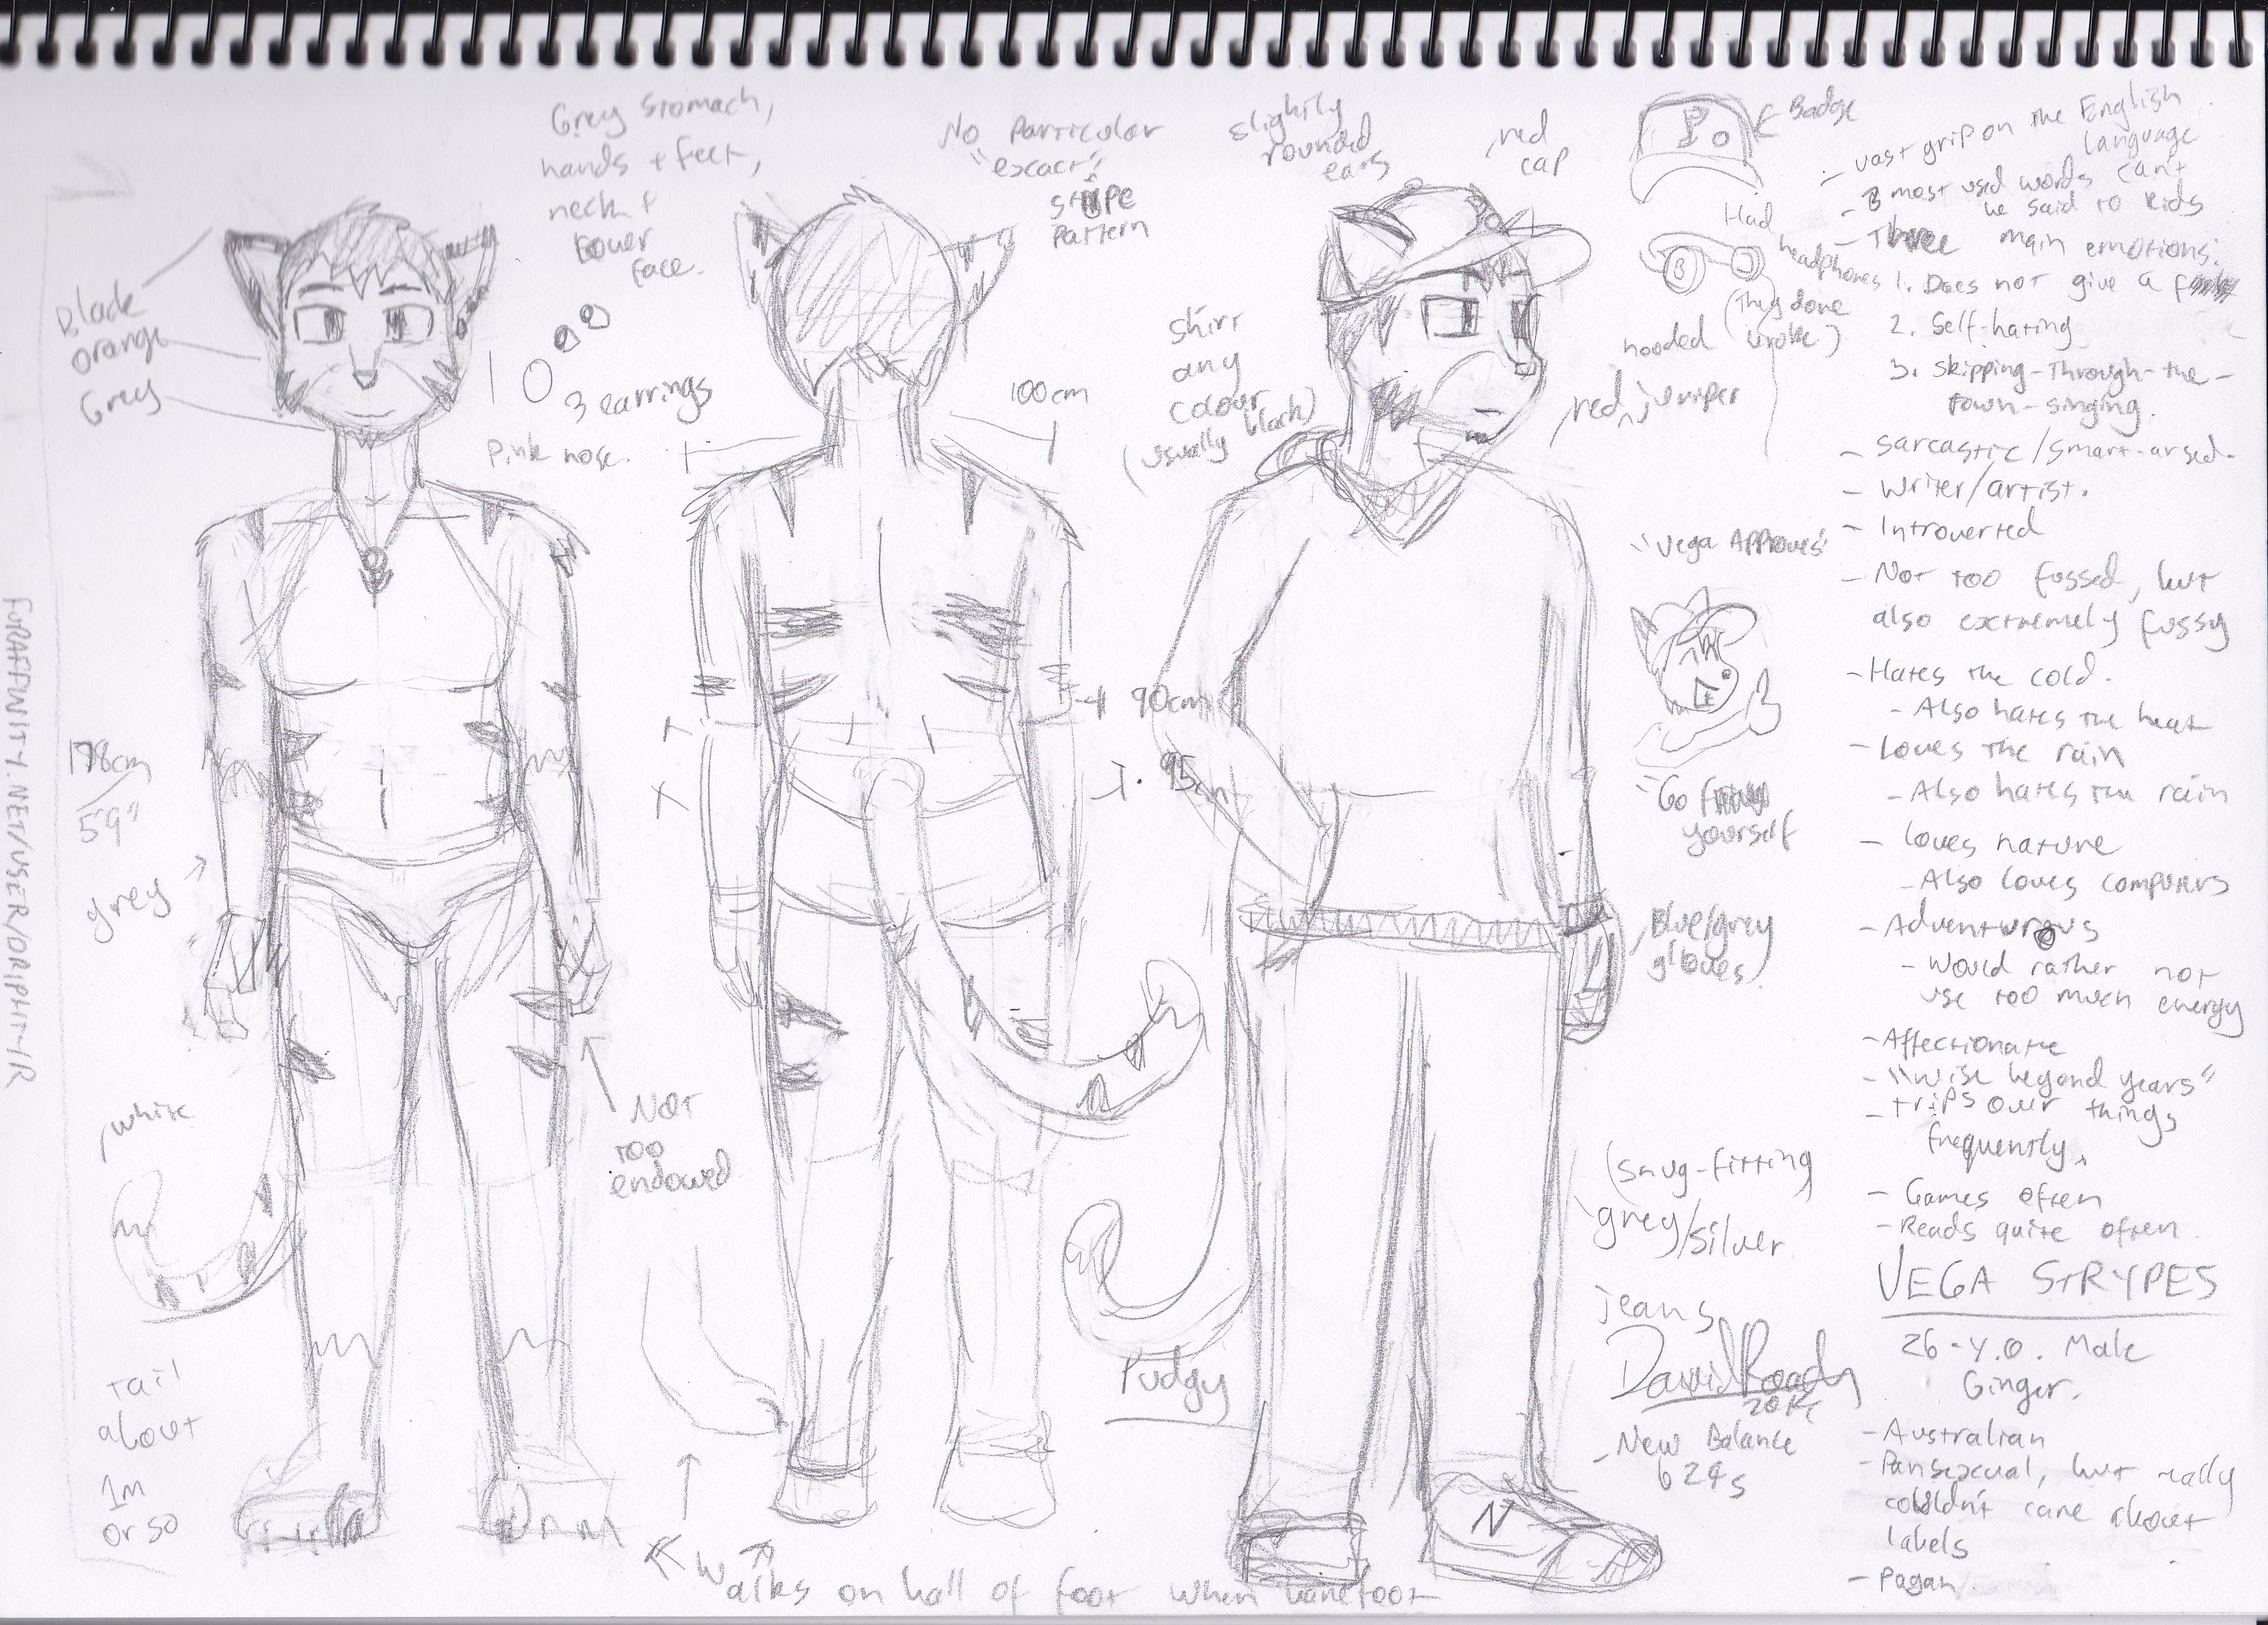 Grey stomach,
hands + feet,
neck +
lower
face.
No particular
"excact"
stripe
pattern
slightly
rounded
ears
red
cap
Badge
Black
orange
Grey
3 earrings
Pink nose.
100cm
shirt
any
colour
(usually black)
Had
headphones
(They done
broke)
hooded
red jumper
"Vega Approves"
"Go
yourself
90cm
95cm
178cm
5'9"
grey
white
Not
too
endowed
tail
about
1m
or so
Pudgy
Walks on ball of foot when barefoot
Blue/grey
gloves.
(snug-fitting)
grey/silver
jeans
David Roady
New Balance
624s
N
FURAFFINITY.NET/USER/DRIPHT-IR
- vast grip on the English
language
- 3 most used words can't
be said to kids
- Three main emotions:
1. Does not give a
2. Self-hating
3. Skipping-through-the-
town-singing.
- sarcastic/smart-arsed.
- Writer/artist.
- Introverted
- Not too fussed, but
also extremely fussy
- Hates the cold.
- Also hates the heat
- Loves the rain
- Also hates the rain
- Loves nature
- Also loves computers
- Adventurous
- Would rather not
use too much energy
- Affectionate
- "wise beyond years"
- trips over things
frequently.
- Games often
- Reads quite often
VEGA STRYPES
26-Y.O. Male
Ginger.
- Australian
- Pansexual, but really
couldn't care about
labels
- Pagan.